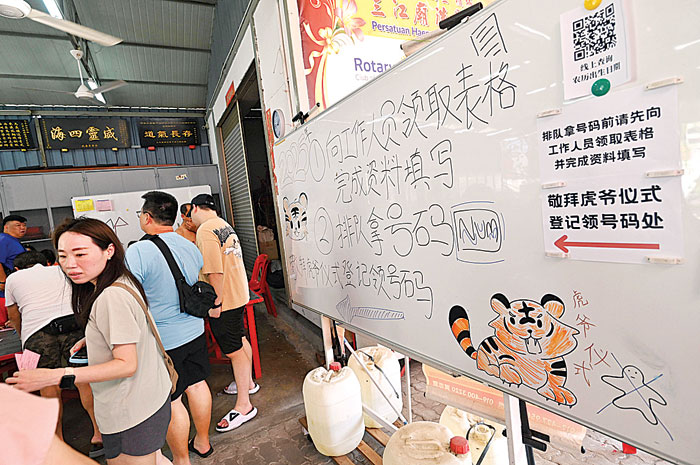 三江廟
Persatuan Hae
Rotary
Club
威靈四海
道氣長存
①向工作人员领取表格
完成资料填写
②排队拿号码
Num
虎爷仪式登记领号码
虎爷仪式
线上查询
农历出生日期
排队拿号码前请先向
工作人员领取表格
并完成资料填写
敬拜虎爷仪式
登记领号码处